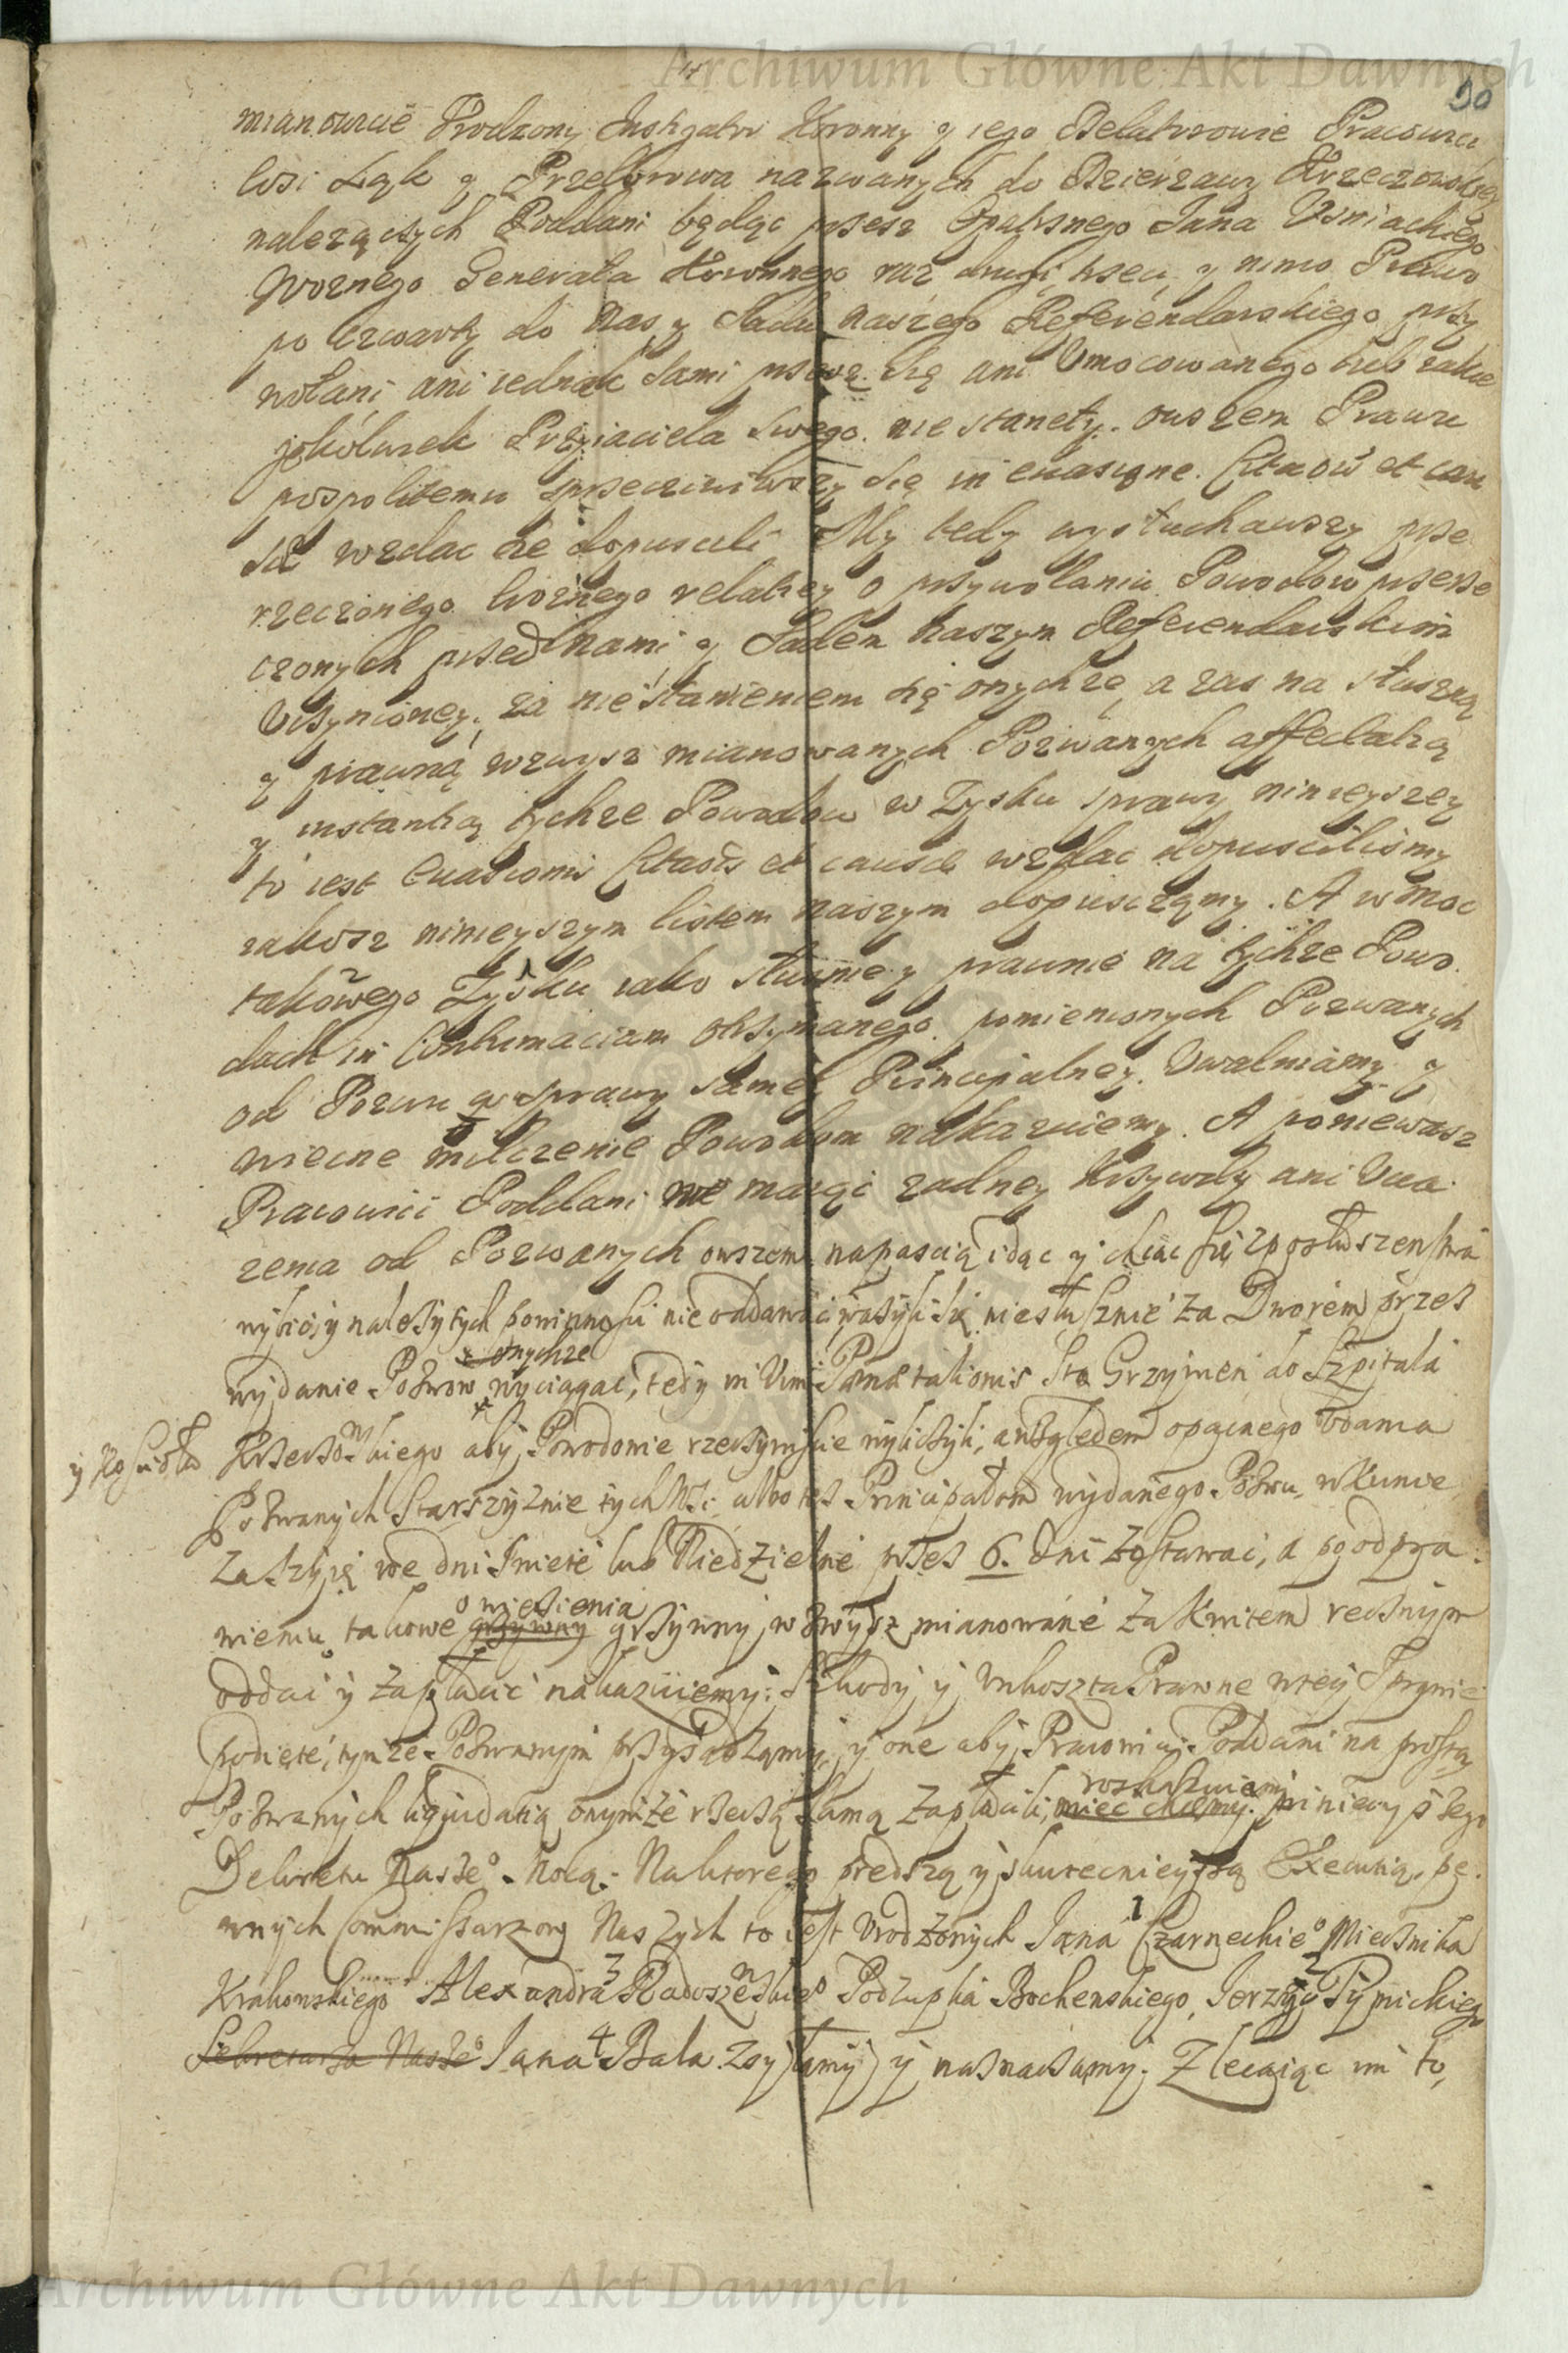 Archiwum Główne Akt Dawnych
90
mianowicie Urodzony Instygator Koronny y iego Delatorowie Pracowici
Wsi Łąk y Przeborowa nazwanych do Dzierżawy Krzeczowskiey
należących Poddani będąc przesz Opatrznego Jana Uzniackiego
Woznego Generała Koronnego raz drugi trzeci y nimo Prawo
po czwarty do Nas y Sadu naszego Referendarskiego przy
wołani ani iednak sami przez się ani Umocowanego lub zakie
jokolwiek Przyiaciela swego nie stanęły. owszem Prawu
pospolitemu sprzeciwiwszy się in euasione Citaōis et cau
sæ wzdac sie dopuscili My tedy wysłuchawszy prze
rzeczonego Woznego relatiey o przywołaniu Powodow przerze
czonych przed Nami y Sadem Naszym Referendarskim
Uczynioney, za nie stawieniem się onychże, a zas na słuszną
y prawną wzwysz mianowanych Pozwanych affectatią
y instantią tychze Powodow w Zysku sprawy ninieyszey
to iest Euasionis Citaōis et causæ wzdac dopuscilismy
iakosz ninieyszym listem naszym dopusczamy. A w moc
takowego Zysku iako słusznie y prawnie na tychze Powo
dach in Contumaciam otrzymanego pomienionych Pozwanych
od Pozwu y sprawy samey Principalney Uwalniamy y
wieczne milczenie Powodom nakazuiemy. A poniewasz
Pracowici Poddani nie maiąc zadney Krzywdy ani Uci
zenia od Pozwanych owszem napascią idąc y chcąc się z posłuszenstwa
wybić, y należytych powinnosci nie oddawać, ważyli się niesłusznie za Dworem przez
z onychze
wydanie Pozwow wyciągac, tedy in Vim Pœnæ talionis Sto Grzywien do Szpitala
y Kosciołá Krzeczowskiego aby Powodowie rzeczywiscie wyliczyli, a względem opacznego Udania
Pozwanych Starszyznie tych Wsi albo tesz Principałom wydanego Pozwu, w Kunie
za szyię we dni Swięte lub Niedzielne przes 6. dni zostawać, a po odpra
o więzienia
wieniu takowe grzywny grzywny wzwysz mianowane za Kwitem recznym
oddać y zapłacić nakazuiemy: Szkody y Unkoszta Prawne w tey Sprawie
podięte, tymże Pozwanym przysądzamy, y one aby Pracowici Poddani na prostą
roskazuiemy
Pozwanych liquidatią onymże rzeczą samą zapłacili, miec chcemy. ninieyszego
Dekretu Naszeº Mocą. Na ktorego prędszą y skutecznieyszą Executią, pe
wnych Commissarzow Naszych to iest Urodzonych Jana 1 Czarneckieº Miecznika
Krakowskiego Alexandra 3 Radoszewskieº Podzupka Bochenskiego, Jerzego 2 Pypnickiego
Sekretarza Naszeº Jana 4 Bala Zsyłamy y naznaczamy. Zlecaiąc im to,
Archiwum Główne Akt Dawnych